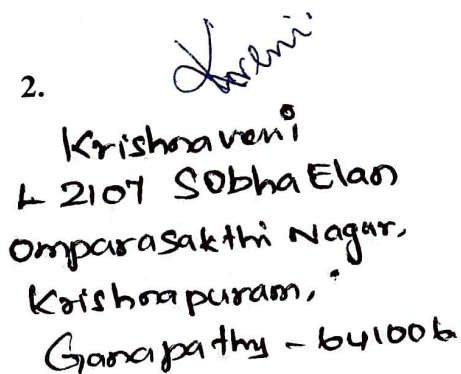 2.
Krishnaveni
L 2107 Sobha Elan
Omparasakthi Nagar,
Krishnapuram,
Ganapathy - 641006